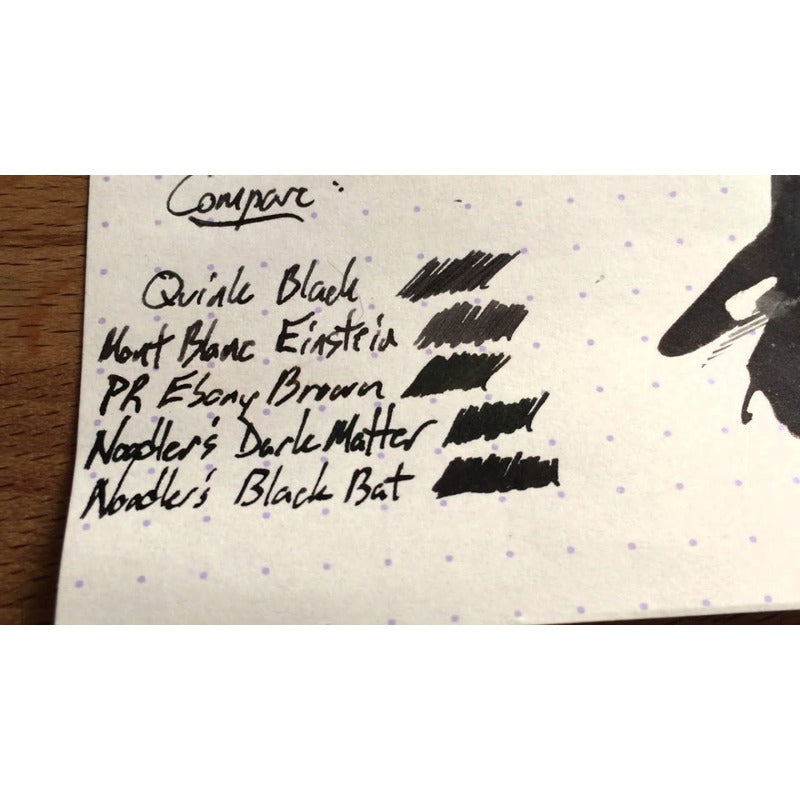 Compare:
Quink Black
Mont Blanc Einstein
PR Ebony Brown
Noodler's Dark Matter
Noodler's Black Bat